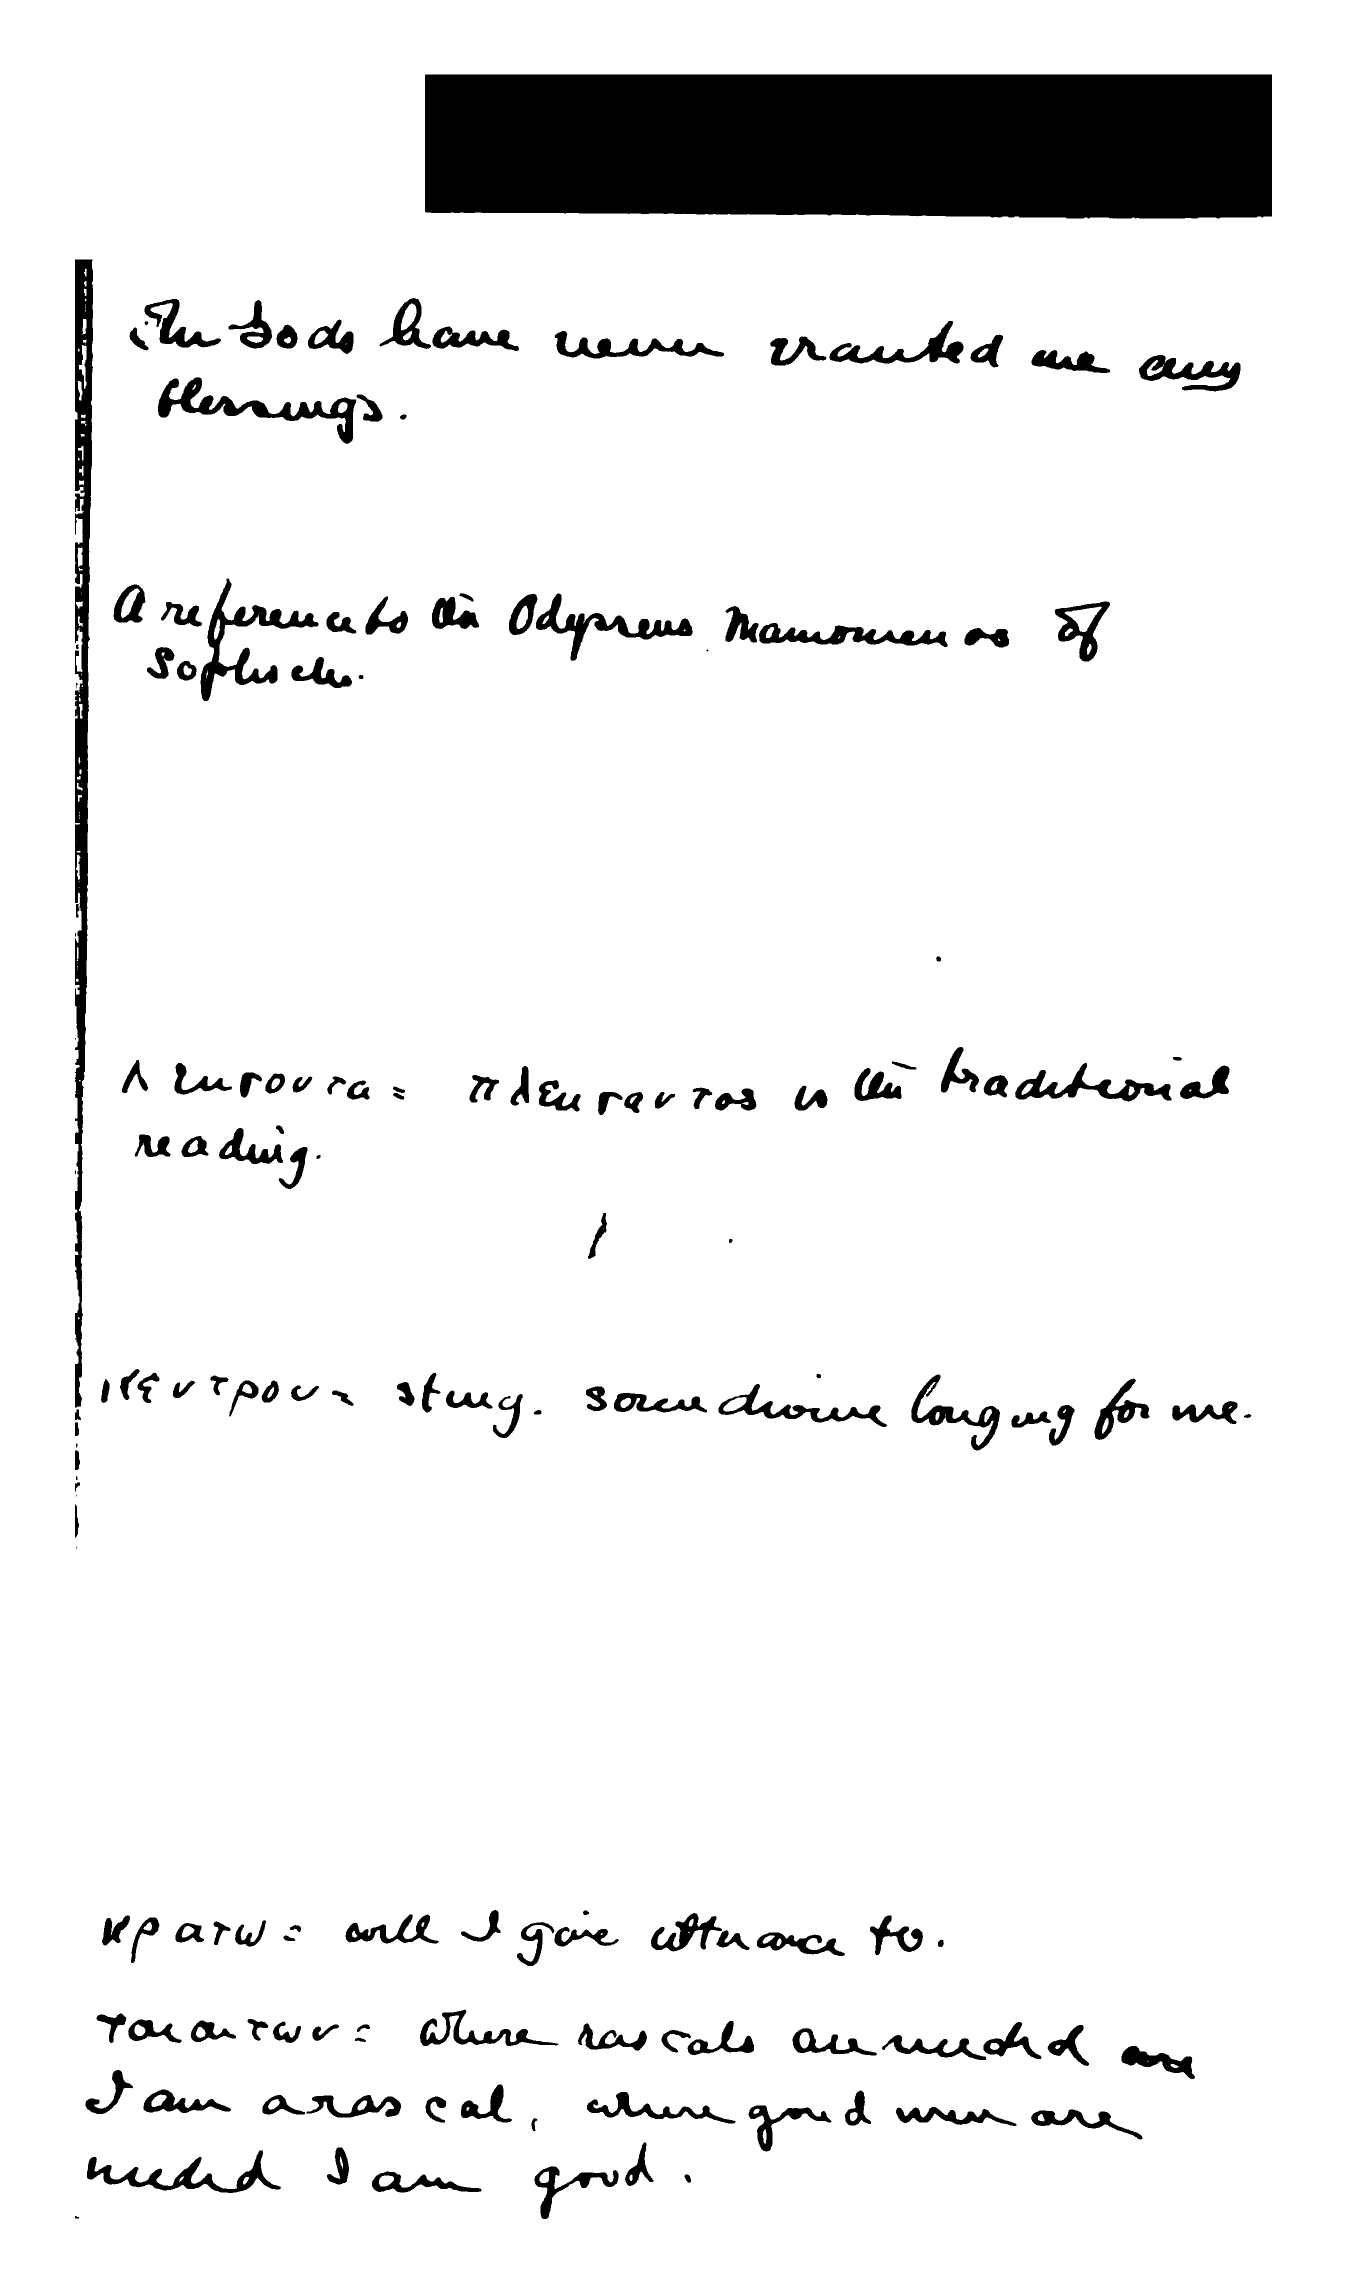 The Gods have never granted me any
blessings.
A reference to the Odysseus Mainomenos of
Sophocles.
πλευσαντος is the traditional
reading.
κεντρον = sting. some divine longing for me.
κρατω = will I give utterance to.
τοιουτων = where rascals are needed
I am a rascal, where good men are
needed I am good.